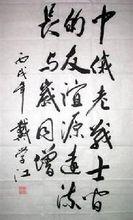 中俄老战士间
的友谊源远流
长与岁同增
丙戌年 戴学江